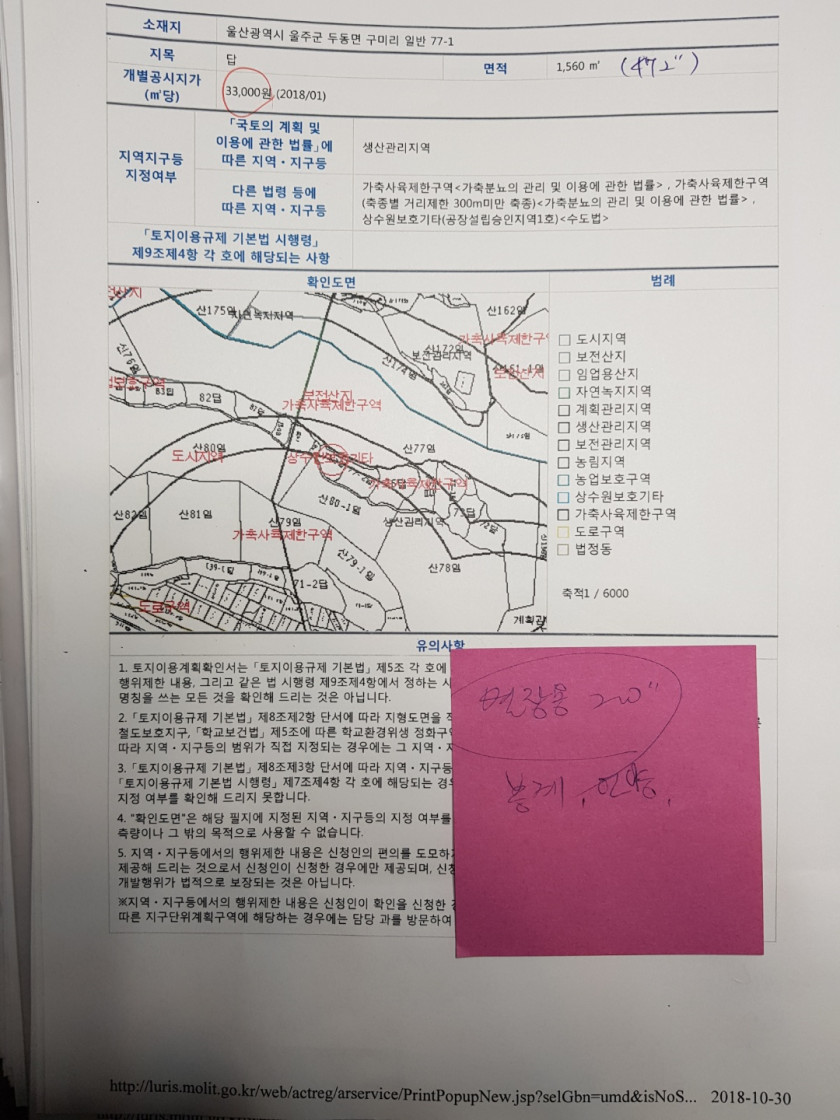 소재지
울산광역시 울주군 두동면 구미리 일반 77-1
지목
답
면적
1,560 ㎡ (472")
개별공시지가
(㎡당)
33,000원 (2018/01)
지역지구등
지정여부
「국토의 계획 및
이용에 관한 법률」에
따른 지역・지구등
생산관리지역
다른 법령 등에
따른 지역・지구등
가축사육제한구역<가축분뇨의 관리 및 이용에 관한 법률> , 가축사육제한구역
(축종별 거리제한 300m미만 축종)<가축분뇨의 관리 및 이용에 관한 법률> ,
상수원보호기타(공장설립승인지역1호)<수도법>
「토지이용규제 기본법 시행령」
제9조제4항 각 호에 해당되는 사항
확인도면
범례
산175임
자연녹지지역
산162임
가축사육제한구역
산172임
보전관리지역
산174임
산76임
83답
82답
보전산지
가축사육제한구역
산80임
도시지역
상수원보호기타
산77임
가축사육제한구역
산82임
산81임
산80-1임
생산관리지역
73답
72답
산79임
가축사육제한구역
산79-1임
산78임
71-2답
도로구역
계획관
도시지역
보전산지
임업용산지
자연녹지지역
계획관리지역
생산관리지역
보전관리지역
농림지역
농업보호구역
상수원보호기타
가축사육제한구역
도로구역
법정동
축척1 / 6000
유의사항
1. 토지이용계획확인서는 「토지이용규제 기본법」 제5조 각 호에
행위제한 내용, 그리고 같은 법 시행령 제9조제4항에서 정하는 사
명칭을 쓰는 모든 것을 확인해 드리는 것은 아닙니다.
2. 「토지이용규제 기본법」 제8조제2항 단서에 따라 지형도면을 작
철도보호지구, 「학교보건법」 제5조에 따른 학교환경위생 정화구
따라 지역・지구등의 범위가 직접 지정되는 경우에는 그 지역・지
3. 「토지이용규제 기본법」 제8조제3항 단서에 따라 지역・지구등
「토지이용규제 기본법 시행령」 제7조제4항 각 호에 해당되는 경우
지정 여부를 확인해 드리지 못합니다.
4. "확인도면"은 해당 필지에 지정된 지역・지구등의 지정 여부를
측량이나 그 밖의 목적으로 사용할 수 없습니다.
5. 지역・지구등에서의 행위제한 내용은 신청인의 편의를 도모하기
제공해 드리는 것으로서 신청인이 신청한 경우에만 제공되며, 신청
개발행위가 법적으로 보장되는 것은 아닙니다.
※지역・지구등에서의 행위제한 내용은 신청인이 확인을 신청한 경
따른 지구단위계획구역에 해당하는 경우에는 담당 과를 방문하여
별장용 20"
봉계, 언양,
http://luris.molit.go.kr/web/actreg/arservice/PrintPopupNew.jsp?selGbn=umd&isNoS... 2018-10-30